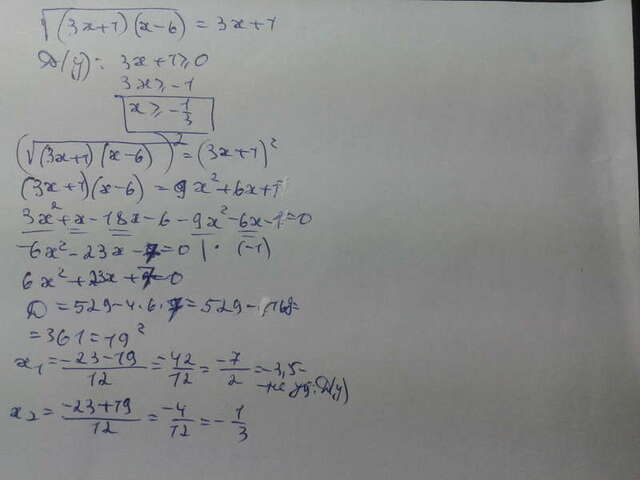 √(3x+1)(x-6) = 3x+1
D(y): 3x+1≥0
3x≥-1
x≥-1/3
(√(3x+1)(x-6))² = (3x+1)²
(3x+1)(x-6) = 9x²+6x+1
3x²+x-18x-6-9x²-6x-1=0
-6x²-23x-7=0 | · (-1)
6x²+23x+7=0
D=529-4·6·7=529-168=
=361=19²
x₁=(-23-19)/12=42/12=-7/2=-3,5-
-не уд. D(y)
x₂=(-23+19)/12=-4/12=-1/3